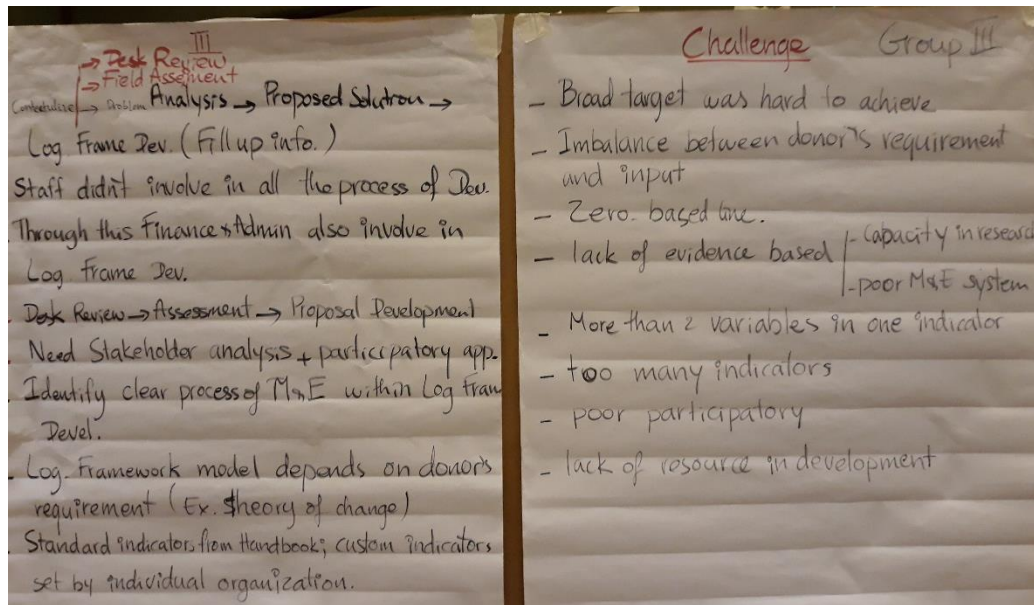 III
→ Desk Review
→ Field Assesment
Contextulize → Problem Analysis → Proposed Solution →
Log. Frame Dev. (Fill up info.)
Staff didn't involve in all the process of Dev.
Through this Finance & Admin also involve in
Log Frame Dev.
Desk Review → Assessment → Proposal Development
Need Stakeholder analysis + participatory app.
Identify clear process of M&E within Log Fram
Devel.
Log-Framework model depends on donor's
requirement (Ex. theory of change)
Standard indicators from Handbook; custom indicators
set by individual organization.
Challenge Group III
- Broad target was hard to achieve
- Imbalance between donor's requirement
and input
- Zero. based line.
- lack of evidence based
- Capacity in research
- poor M&E system
- More than 2 variables in one indicator
- too many indicators
- poor participatory
- lack of rosource in development